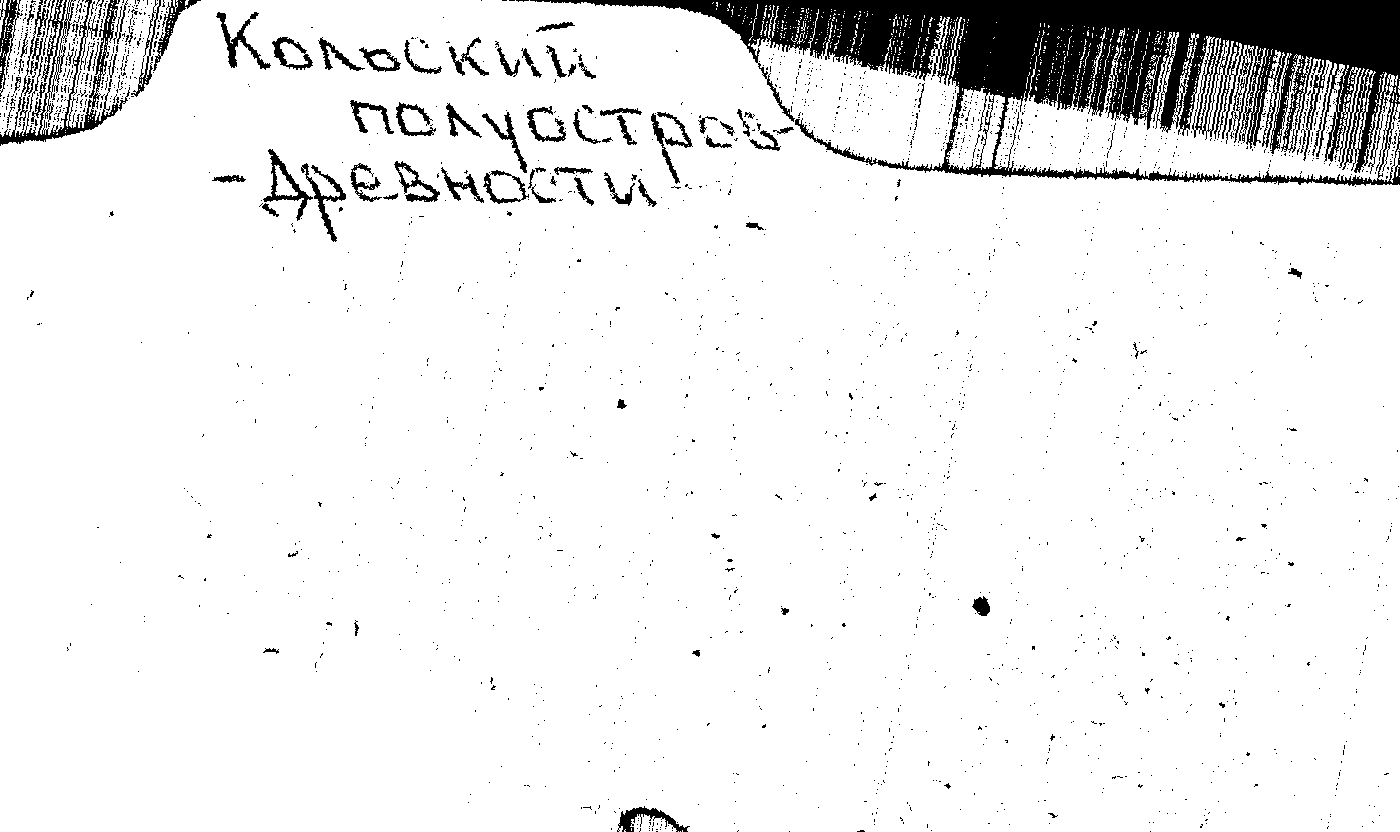 Кольский
полуостров-
- Древности